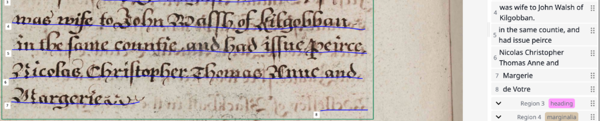 was wife to John Walsh of Kilgobban
in the same countie, and had issue peirce
Nicolas Christopher Thomas Anne and
Margerie
4 was wife to John Walsh of
Kilgobban.
5 in the same countie, and
had issue peirce
6 Nicolas Christopher
Thomas Anne and
7 Margerie
8 de Votre
Region 3 heading
Region 4 marginalia